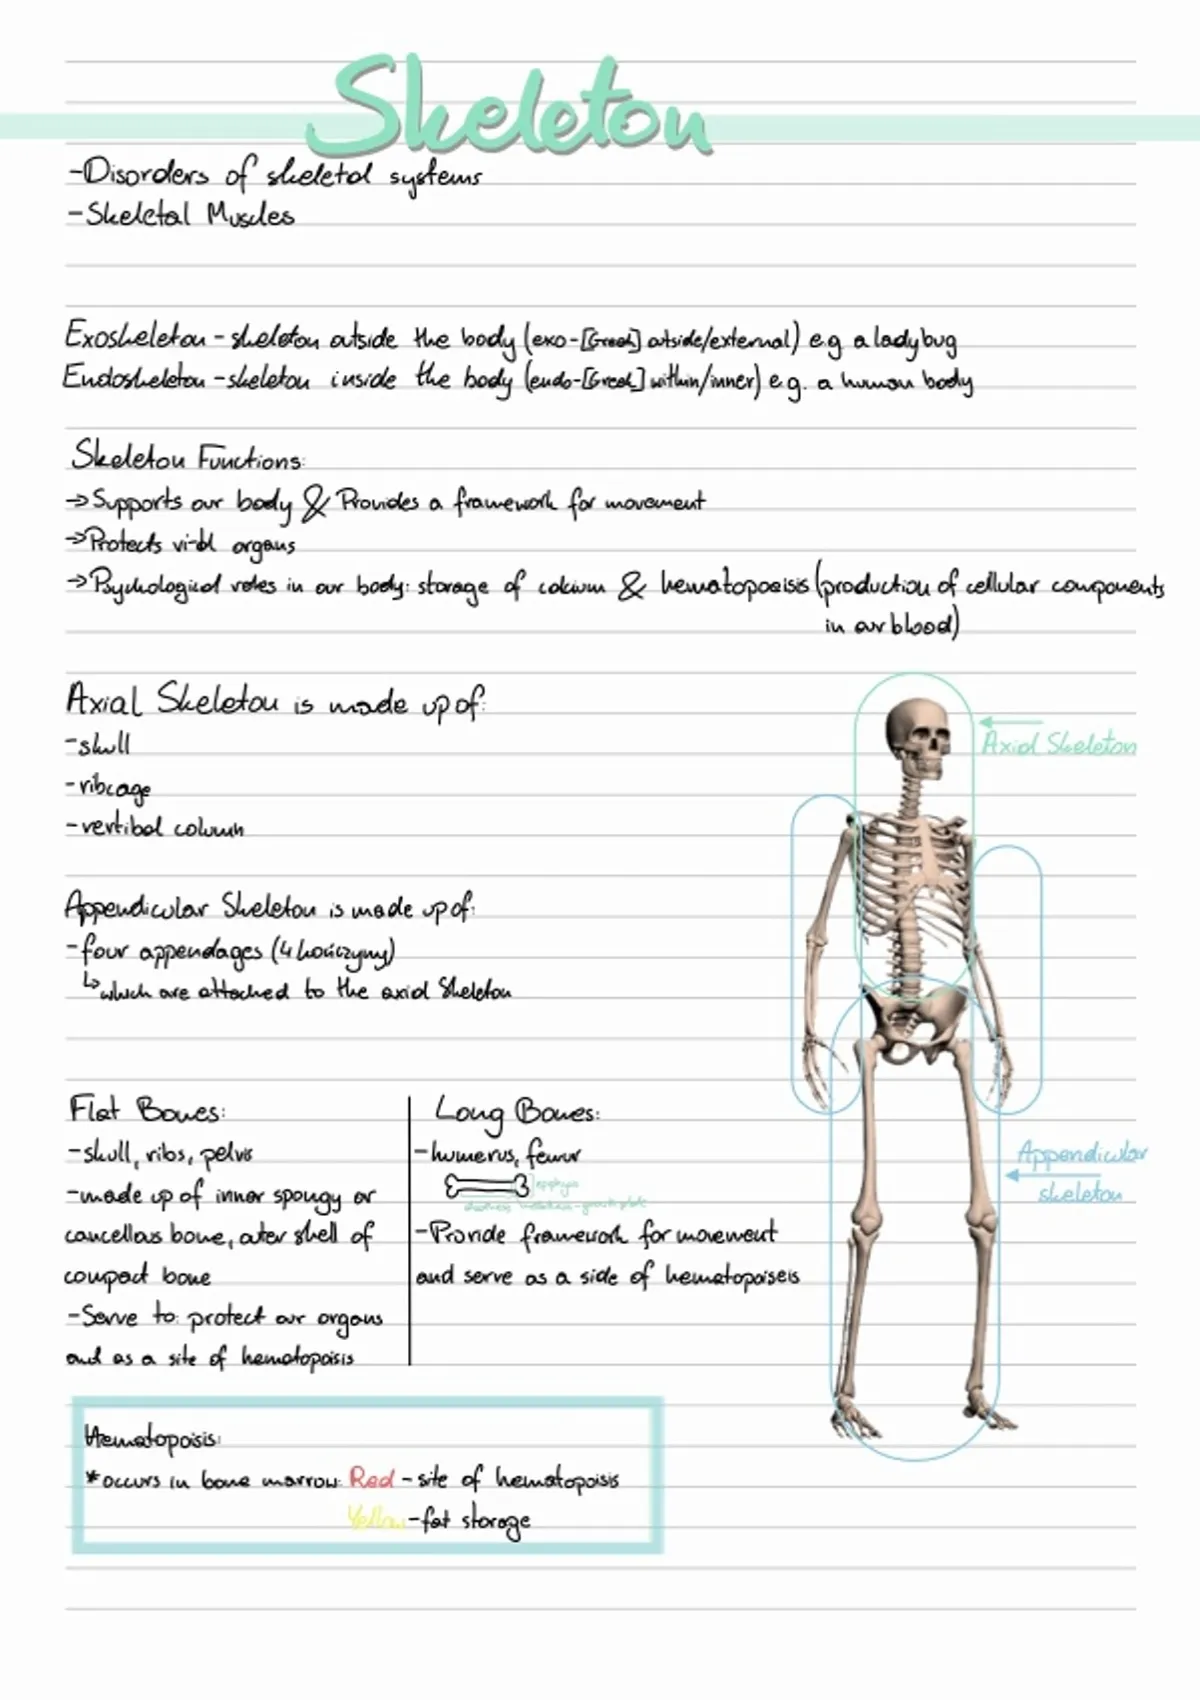 Skeleton
-Disorders of skeletal systems
-Skeletal Muscles
Exoskeleton - skeleton outside the body (exo-[Greek] outside/external) e.g a ladybug
Endoskeleton - skeleton inside the body (endo-[Greek] within/inner) e.g. a human body
Skeleton Functions:
→Supports our body & Provides a framework for movement
→Protects vital organs
→Psychological roles in our body: storage of calcium & hematopoeisis (production of cellular components
in our blood)
Axial Skeleton is made up of:
-skull
-ribcage
-vertibal column
Axial Skeleton
Appendicular Skeleton is made up of:
-four appendages (4 kończyny)
↳which are attached to the axial Skeleton
Flat Bones:
-skull, ribs, pelvis
-made up of inner spongy or
cancellous bone, outer shell of
compact bone
-Serve to: protect our organs
and as a site of hematopoisis
Long Bones:
-humerus, femur
epiphysis
-growth plate
-Provide framework for movement
and serve as a side of hematopoiseis
Appendicular
skeleton
Hematopoisis:
*occurs in bone marrow: Red - site of hematopoisis
Yellow - fat storage